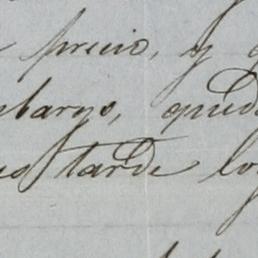 precio, y
mbargo, qued
tarde lo